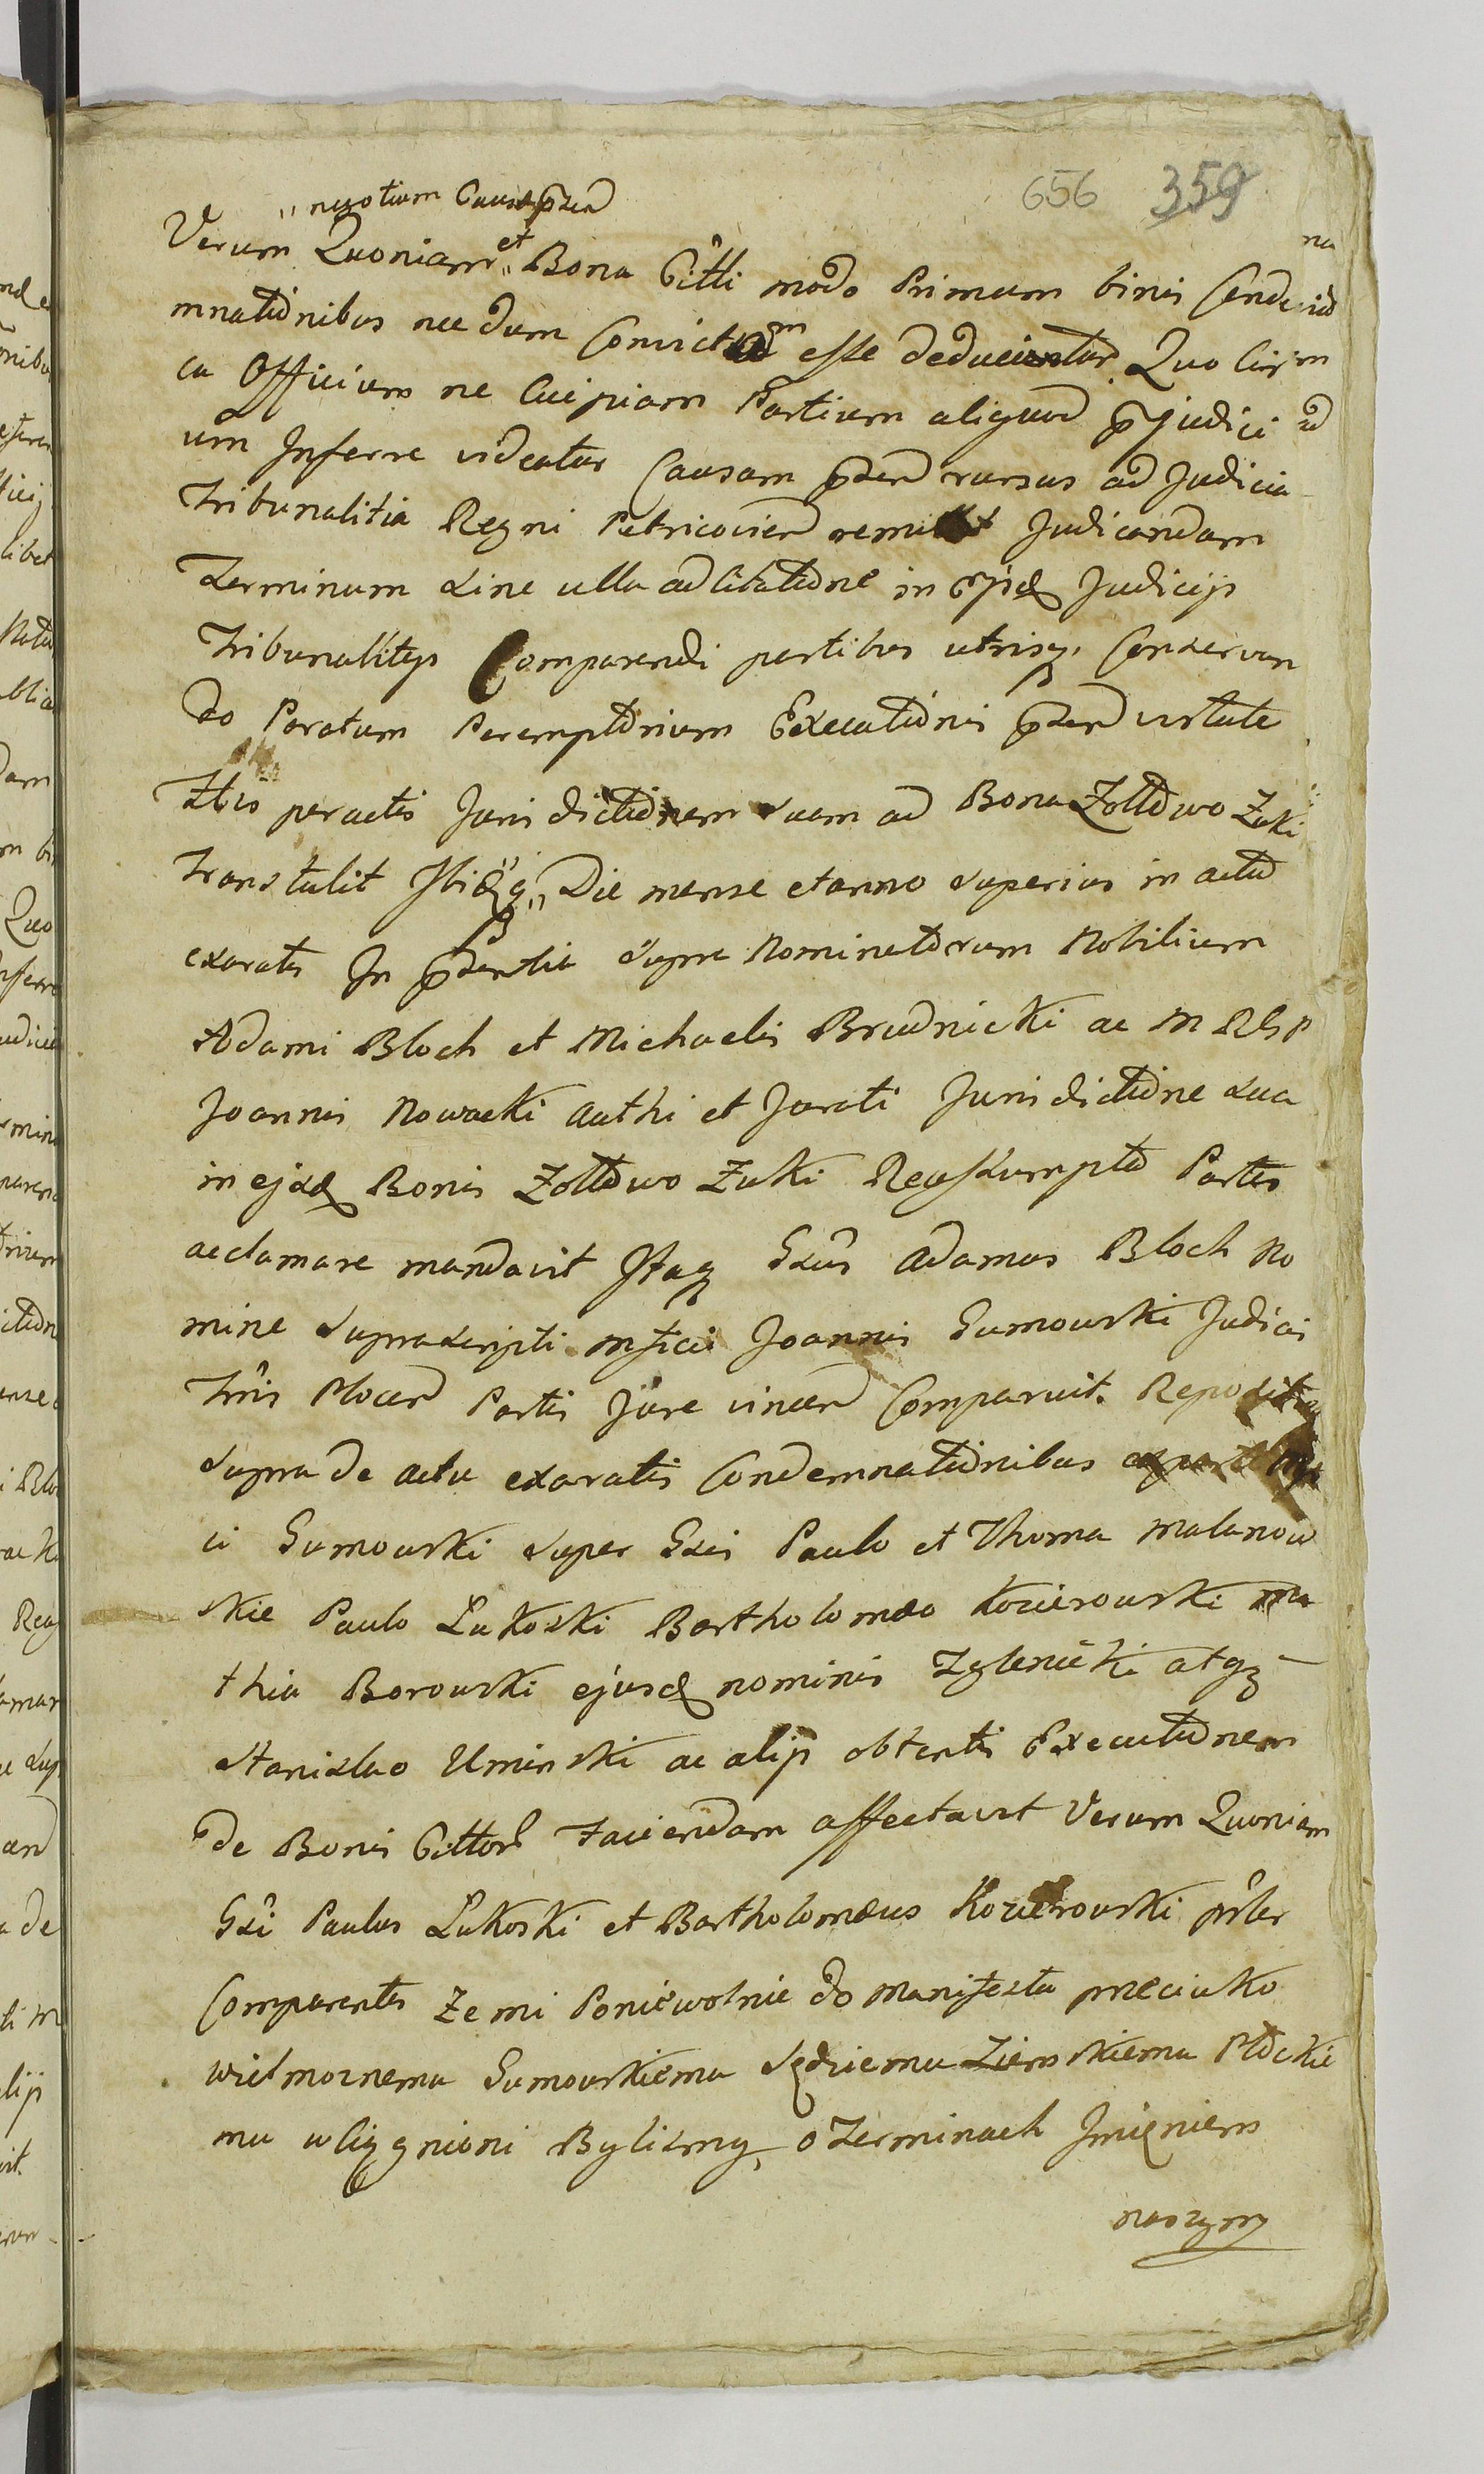 656 359
negotium Causæ pñtem
Verum Quoniam et Bona Citti modo Primum binis Conde
mnationibus nec dum Convictam esse deducuntur Quo Cir
ca Officium ne Cuipiam Partium aliquod præjudici
um Inferre videatur Causam pñtem rursus ad Judicia
Tribunalitia Regni Petricovien remittit Judicandam
Terminum sine ulla adcitatione in ejsd Judicijs
Tribunalitijs Comparendi partibus utrisq Conservan
do Paratum Peremptorium Executionis pñten virtute
Ibis peractis Jurisdictionem suam ad Bona Zoltowo Zuki
Transtulit Ibiq Die mense et anno superius in actu
exaratis In pñsentia supra Nominatorum Nobilium
Adami Bloch et Michaelis Brudnicki ac M RGP
Joannis Nowacki Authi et Jurati Jurisdictione sua
in ejsd Bonis Zoltowo Zuki Reassumpta Partes
acclamare mandavit Itaq Gsus Adamus Bloch No
mine suprascripti mfici Joannis Sumowski Judicis
Trris Plocen Partis Jure vincen Comparuit. Repositis
supra de actu exaratis Condemnationibus
ci Sumowski super Gsis Paulo et Thoma Malanow
skie Paulo Lukoski Bartholomæo Kozierowski Ma
thia Borowski ejusd nominis Zglenicki atq
Stanislao Uminski ac alijs obtentis Executionem
de Bonis Cittor faciendam affectavit Verum Quoniam
Gsi Paulus Lukoski et Bartholomæus Kozierowski psler
Comparentes Ze mi Poniewolnie do Manifestu przeciwko
wielmoznemu Sumowskiemu Sędziemu Ziemskiemu Płockie
mu wciągnieni Bylismy o Terminach Jmieniem
naszym